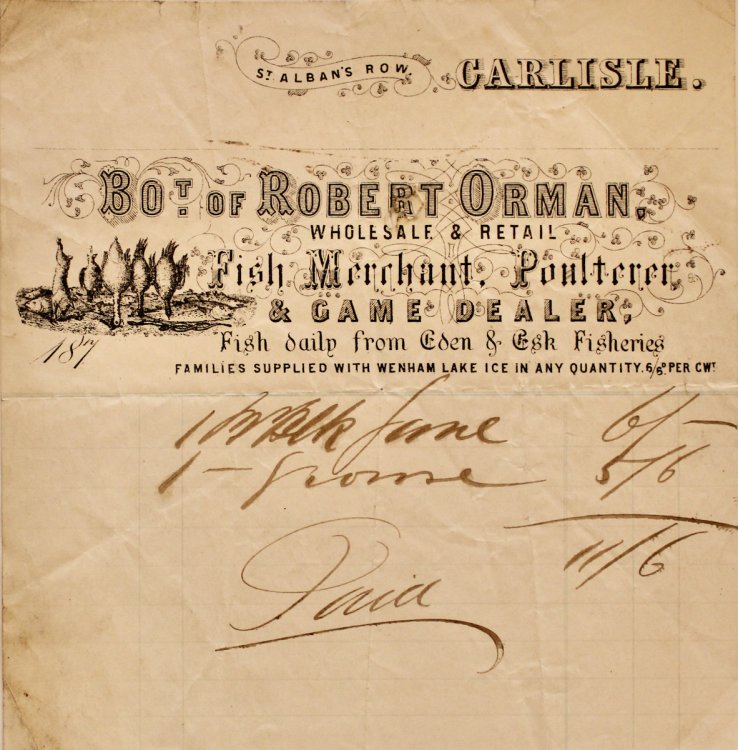 ST ALBAN'S ROW. CARLISLE.
BOT. OF ROBERT ORMAN,
WHOLESALE & RETAIL
Fish Merchant, Poulterer
& GAME DEALER,
187
Fish daily from Eden & Esk Fisheries
FAMILIES SUPPLIED WITH WENHAM LAKE ICE IN ANY QUANTITY. PER CWT
1 Br Blk Game 6/-
1 - Grouse 5/6
11/6
Paid